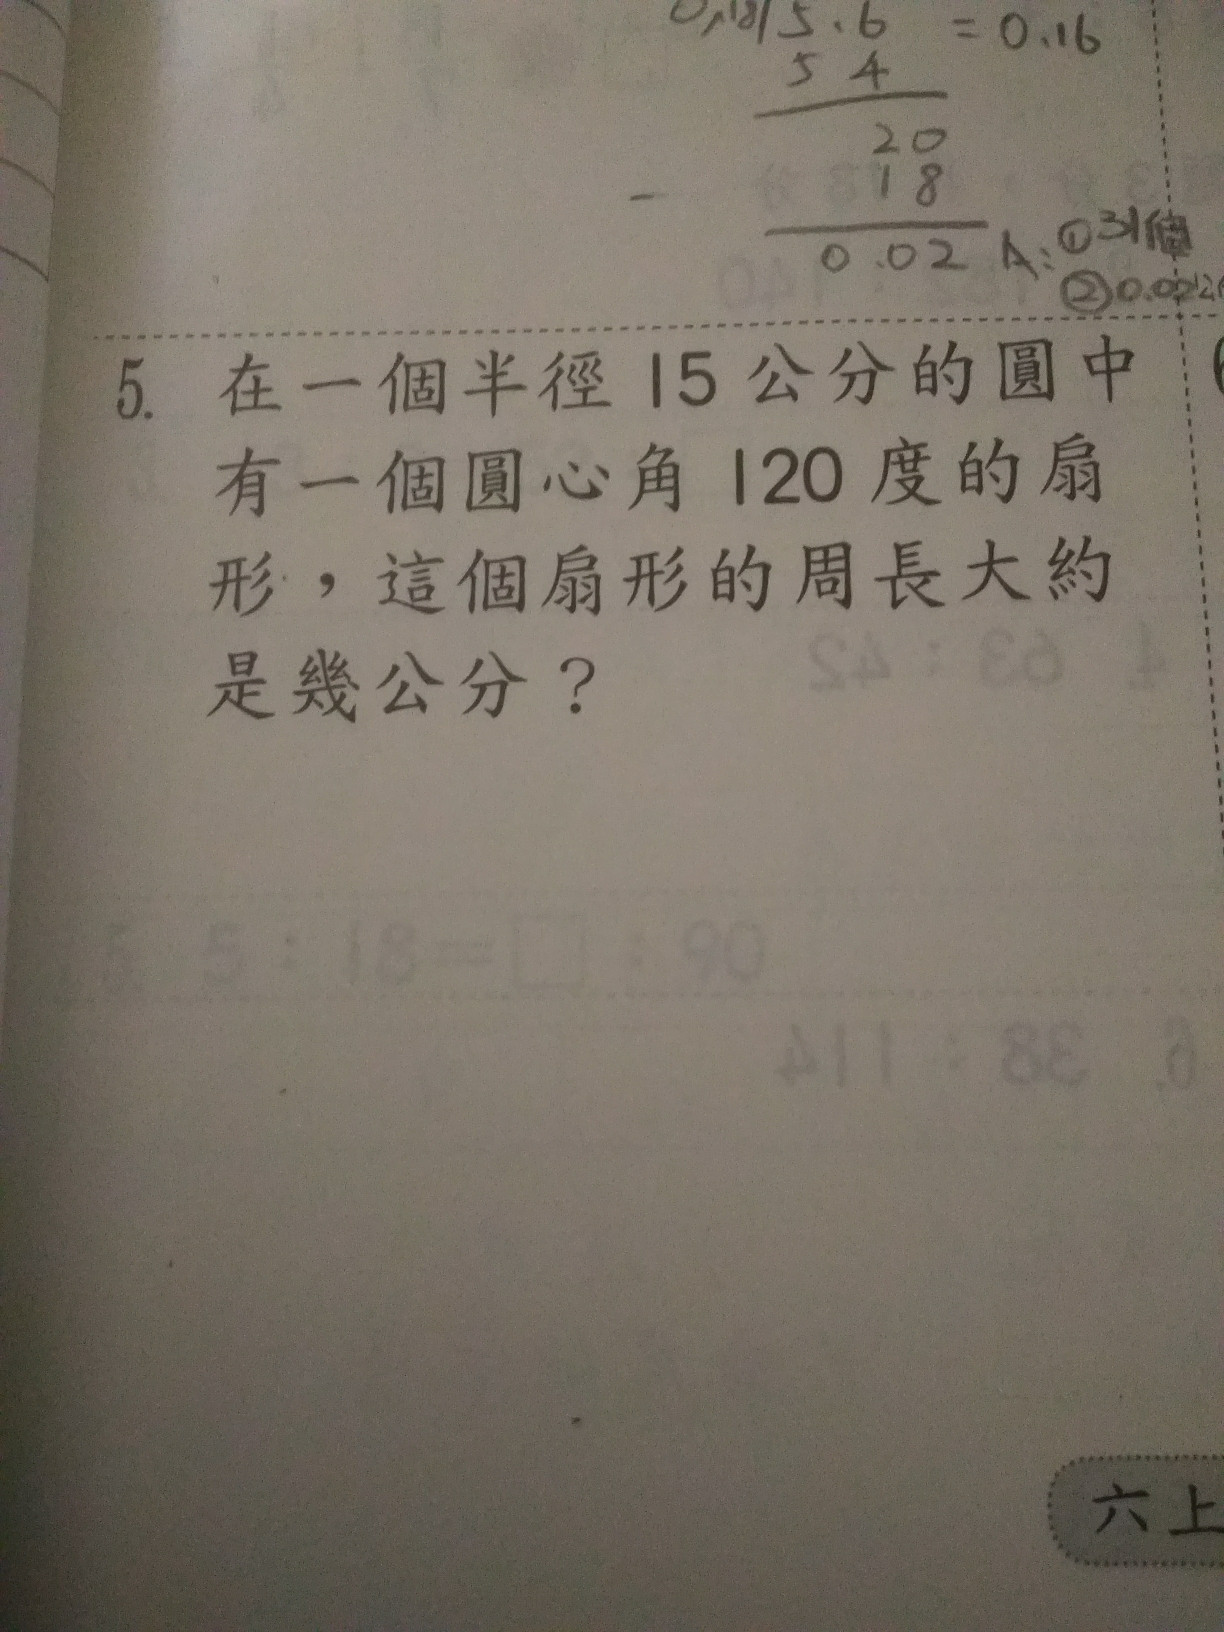 5.6 = 0.16
54
20
- 18
0.02 A: ①31個
②0.02公
5. 在一個半徑15公分的圓中
有一個圓心角120度的扇
形，這個扇形的周長大約
是幾公分？
六上